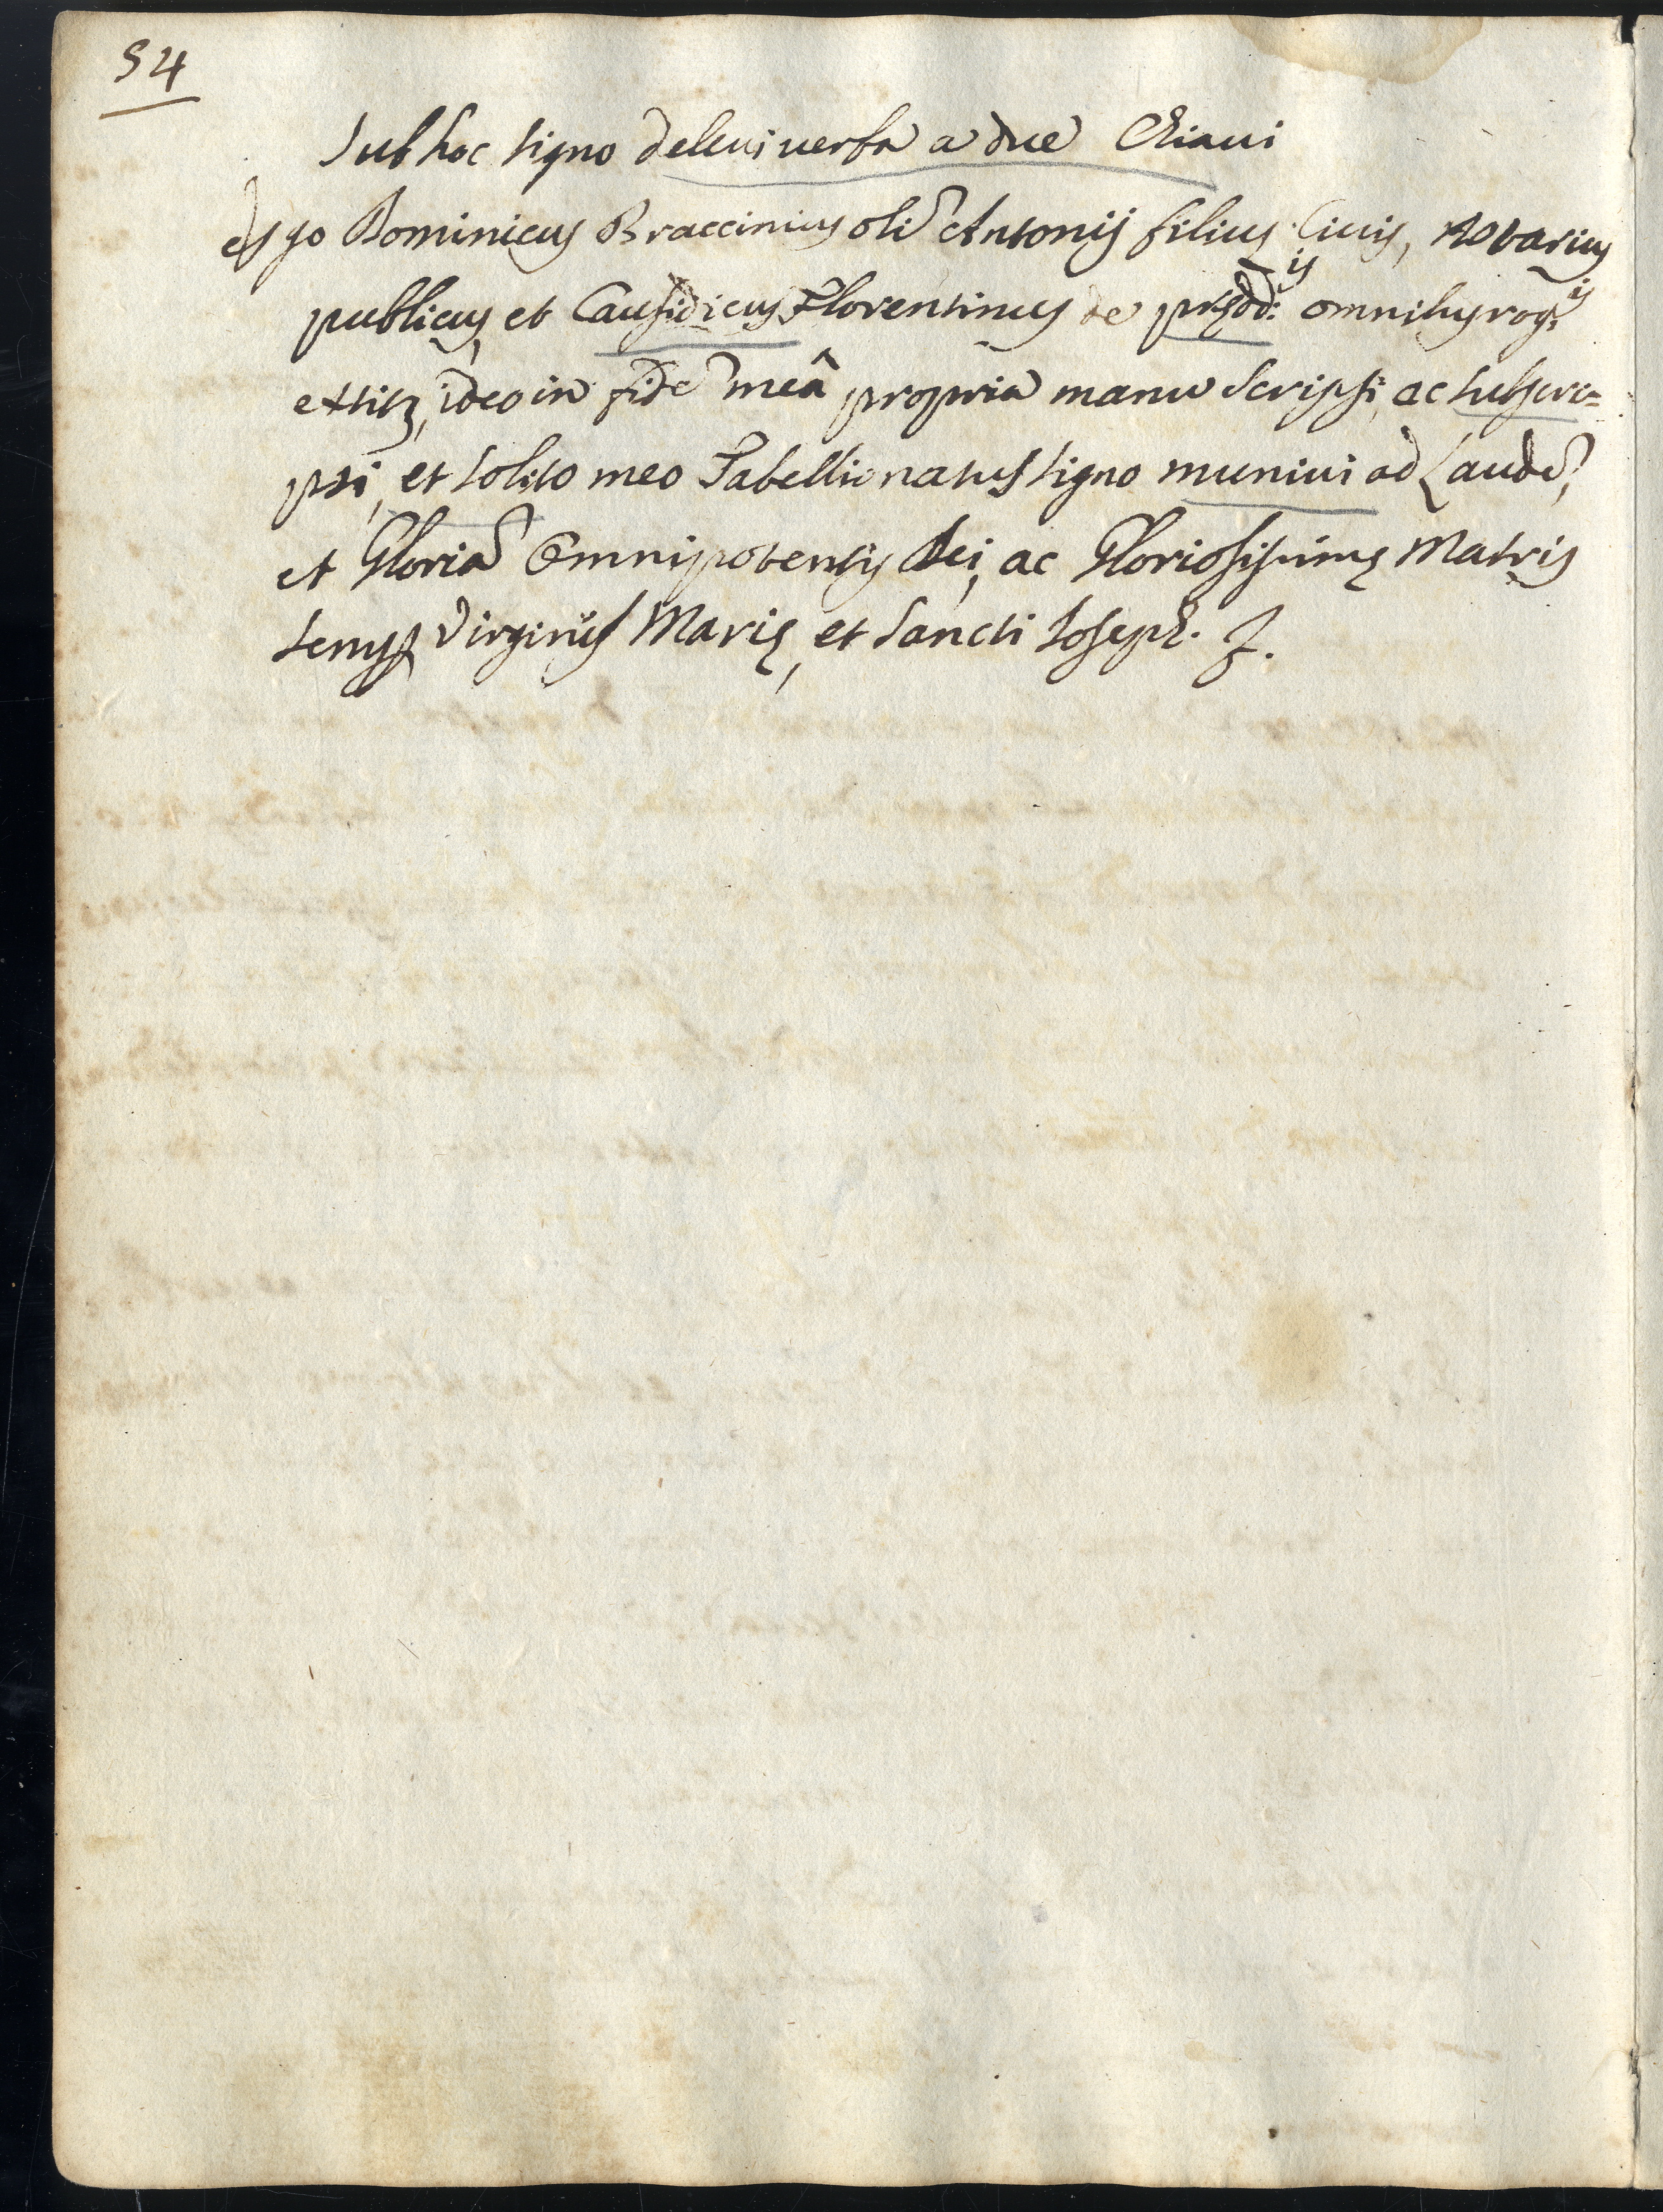 54
Sub hoc signo delevi verba a due Chiavi
Ego Dominicus Braccinius oli͂ Antonij filius Civis, Notarius
publicus, et Causidicus Florentinus de præd:is omnibus rog:is
extiti, ideo in fide͂ meâ propria manu Scripsi, ac subscri=
psi, et solito meo Tabellionatus signo munivi ad Laude͂,
et Gloria͂ Omnipotentis Dei, ac Gloriosissimę Matris
semp Virginis Marię, et Sancti Joseph.